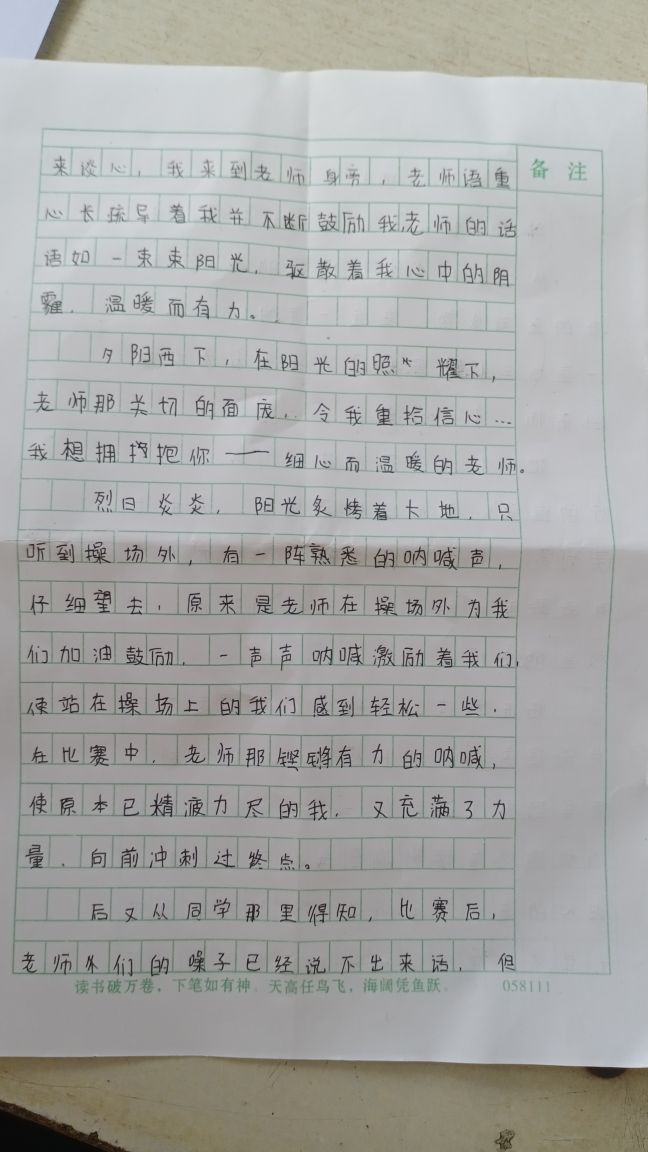 备 注
来谈心，我来到老师身旁，老师语重
心长疏导着我并不断鼓励我，老师的话
语如一束束阳光，驱散着我心中的阴
霾，温暖而有力。
夕阳西下，在阳光的照耀下，
老师那关切的面庞，令我重拾信心…
我想拥抱你——细心而温暖的老师。
烈日炎炎，阳光炙烤着大地，只
听到操场外，有一阵熟悉的呐喊声，
仔细望去，原来是老师在操场外为我
们加油鼓励，一声声呐喊激励着我们，
使站在操场上的我们感到轻松一些．
在比赛中，老师那铿锵有力的呐喊，
使原本已精疲力尽的我，又充满了力
量，向前冲刺过终点。
后又从同学那里得知，比赛后，
老师们的嗓子已经说不出来话，但
读书破万卷，下笔如有神。天高任鸟飞，海阔凭鱼跃。 058111